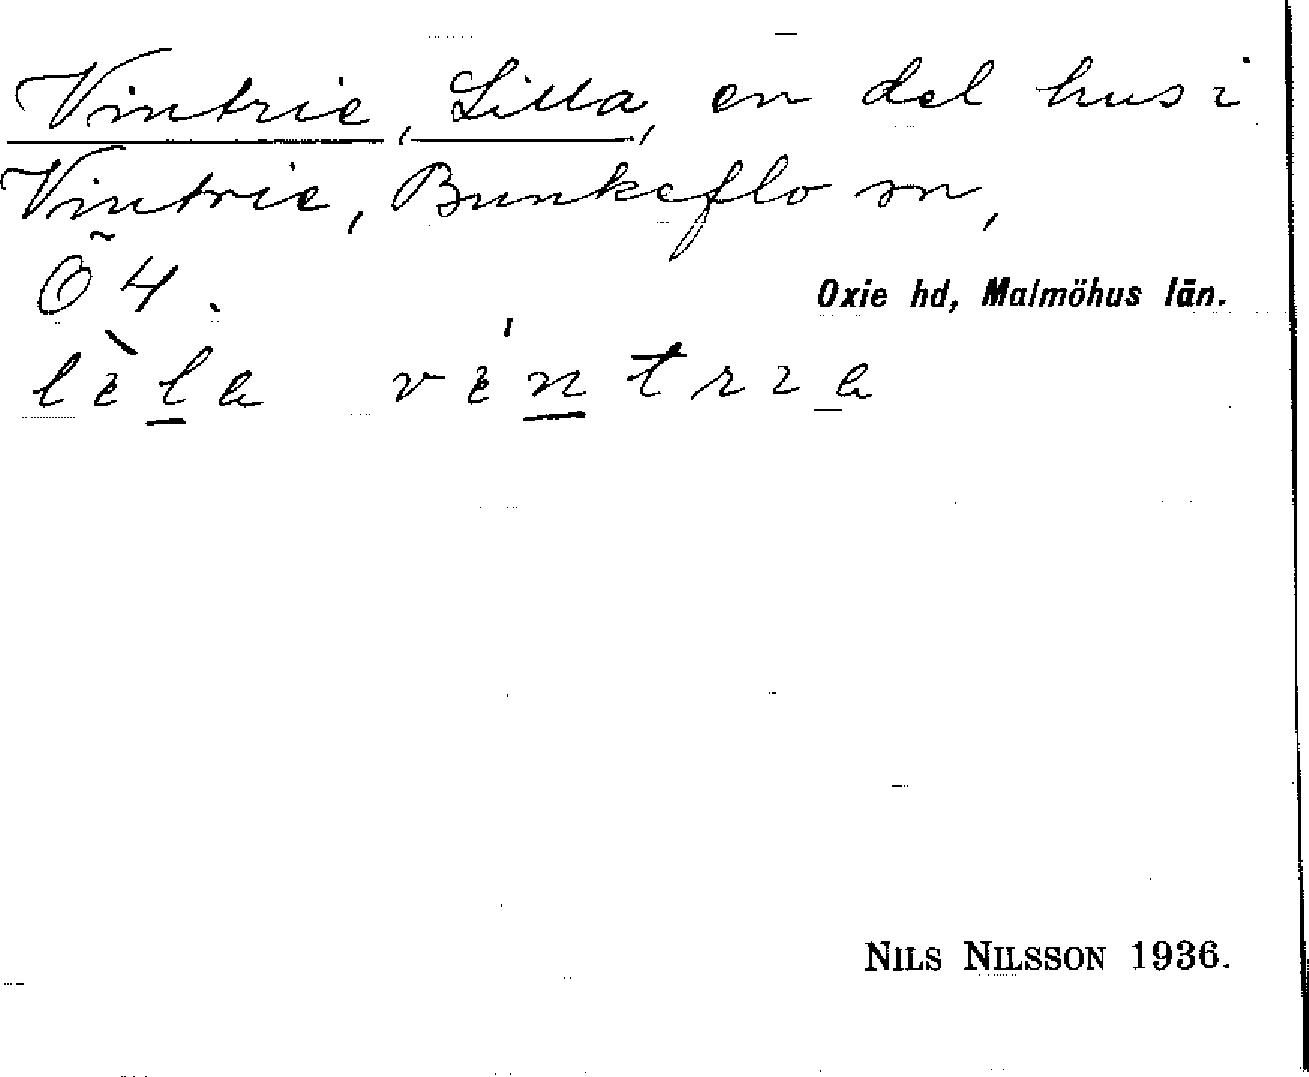 Vintrie, Lilla, en del hus i
Vintrie, Bunkeflo sn,
Ö 4.
Oxie hd, Malmöhus län.
lèla véntrıa
NILS NILSSON 1936.